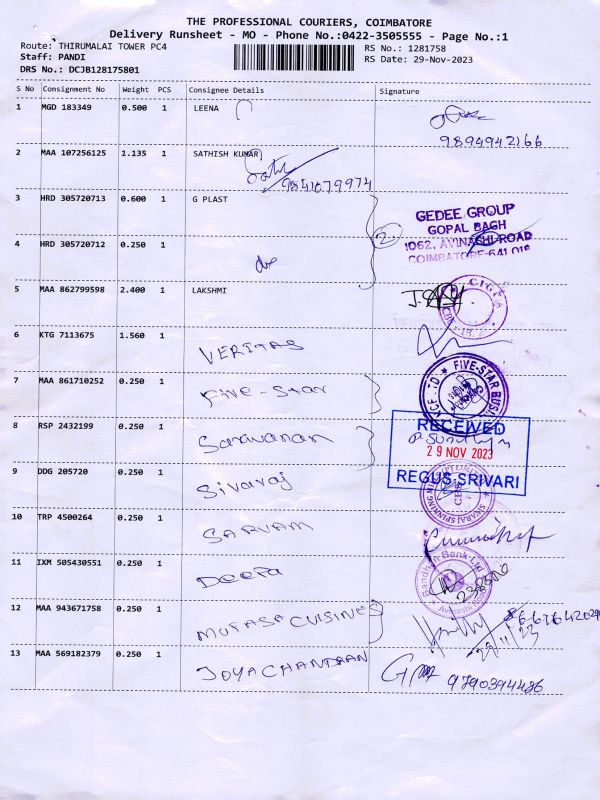 THE PROFESSIONAL COURIERS, COIMBATORE
Delivery Runsheet - MO - Phone No.:0422-3505555 - Page No.:1
Route: THIRUMALAI TOWER PC4 RS No.: 1281758
Staff: PANDI RS Date: 29-Nov-2023
DRS No.: DCJB128175801
S No Consignment No Weight PCS Consignee Details Signature
1 MGD 183349 0.500 1 LEENA
9894942166
2 MAA 107256125 1.135 1 SATHISH KUMAR
9841079974
3 HRD 305720713 0.600 1 G PLAST
GEDEE GROUP
GOPAL BAGH
2
1062, AVINASHI ROAD
COIMBATORE-641 018
4 HRD 305720712 0.250 1
do
5 MAA 862799598 2.400 1 LAKSHMI
6 KTG 7113675 1.560 1
VERITAS
7 MAA 861710252 0.250 1 Five-Star
FIVE-STAR
8 RSP 2432199 0.250 1 Saravanan
RECEIVED
29 NOV 2023
REGUS SRIVARI
9 DDG 205720 0.250 1 Sivaraj
SIVARAJ SPINNING
10 TRP 4500264 0.250 1
SARVAM
11 IXM 505430551 0.250 1
DEEPA
Bandhan Bank Ltd
12 MAA 943671758 0.250 1
MUFASA CUISINES
29/11/23
13 MAA 569182379 0.250 1
JOYACHANDRAN
9790394486